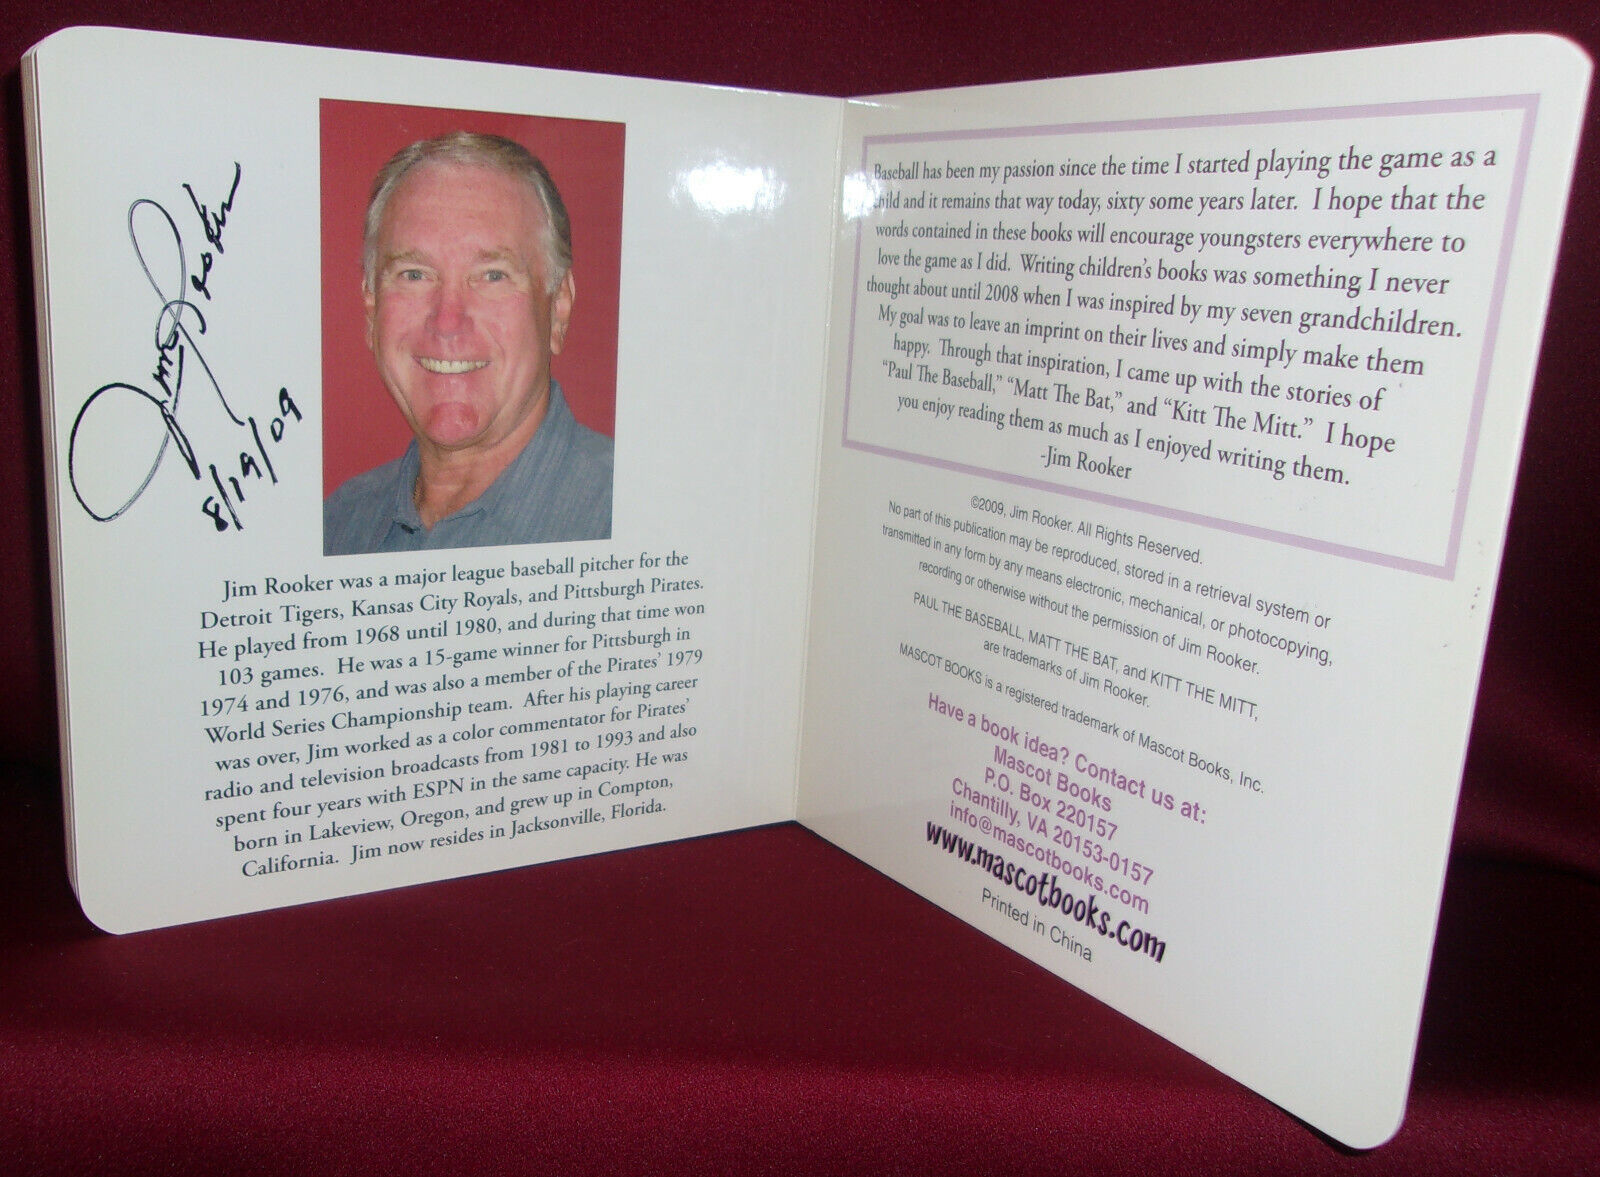 Jim Rooker
8/19/09
Jim Rooker was a major league baseball pitcher for the
Detroit Tigers, Kansas City Royals, and Pittsburgh Pirates.
He played from 1968 until 1980, and during that time won
103 games. He was a 15-game winner for Pittsburgh in
1974 and 1976, and was also a member of the Pirates' 1979
World Series Championship team. After his playing career
was over, Jim worked as a color commentator for Pirates'
radio and television broadcasts from 1981 to 1993 and also
spent four years with ESPN in the same capacity. He was
born in Lakeview, Oregon, and grew up in Compton,
California. Jim now resides in Jacksonville, Florida.
Baseball has been my passion since the time I started playing the game as a
child and it remains that way today, sixty some years later. I hope that the
words contained in these books will encourage youngsters everywhere to
love the game as I did. Writing children's books was something I never
thought about until 2008 when I was inspired by my seven grandchildren.
My goal was to leave an imprint on their lives and simply make them
happy. Through that inspiration, I came up with the stories of
"Paul The Baseball," "Matt The Bat," and "Kitt The Mitt." I hope
you enjoy reading them as much as I enjoyed writing them.
-Jim Rooker
©2009, Jim Rooker. All Rights Reserved.
No part of this publication may be reproduced, stored in a retrieval system or
transmitted in any form by any means electronic, mechanical, or photocopying,
recording or otherwise without the permission of Jim Rooker.
PAUL THE BASEBALL, MATT THE BAT, and KITT THE MITT,
are trademarks of Jim Rooker.
MASCOT BOOKS is a registered trademark of Mascot Books, Inc.
Have a book idea? Contact us at:
Mascot Books
P.O. Box 220157
Chantilly, VA 20153-0157
info@mascotbooks.com
www.mascotbooks.com
Printed in China